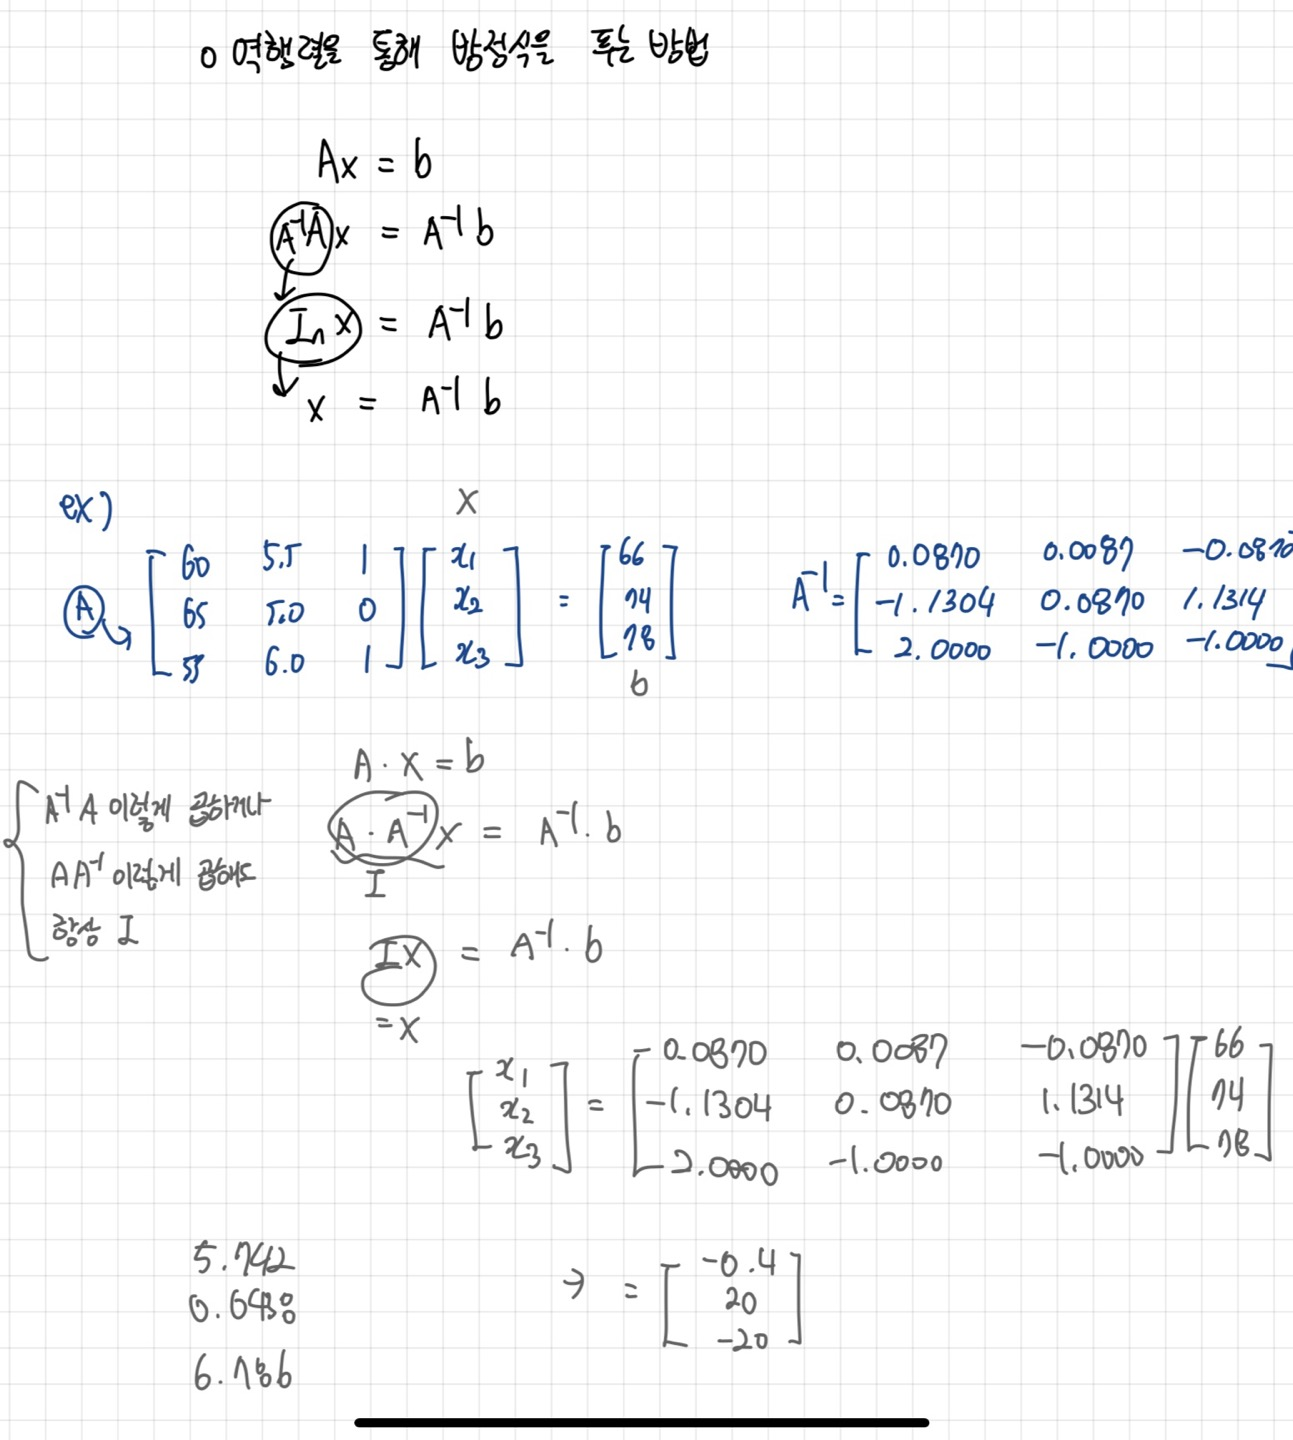 o 역행렬을 통해 방정식을 푸는 방법
Ax = b
A⁻¹Ax = A⁻¹b
Iₙx = A⁻¹b
x = A⁻¹b
ex)
X
A → [60 5.5 1] [x₁] = [66]
[65 5.0 0] [x₂] [74]
[55 6.0 1] [x₃] [78]
b
A⁻¹ = [0.0870 0.0087 -0.0870]
[-1.1304 0.0870 1.1314]
[2.0000 -1.0000 -1.0000]
A⁻¹A 이렇게 곱하거나
AA⁻¹ 이렇게 곱해도
항상 I
A · X = b
A · A⁻¹ X = A⁻¹ · b
I
IX = A⁻¹ · b
= X
[x₁] = [0.0870 0.0087 -0.0870] [66]
[x₂] [-1.1304 0.0870 1.1314] [74]
[x₃] [2.0000 -1.0000 -1.0000] [78]
→ = [-0.4]
[20]
[-20]
5.742
0.6438
6.786